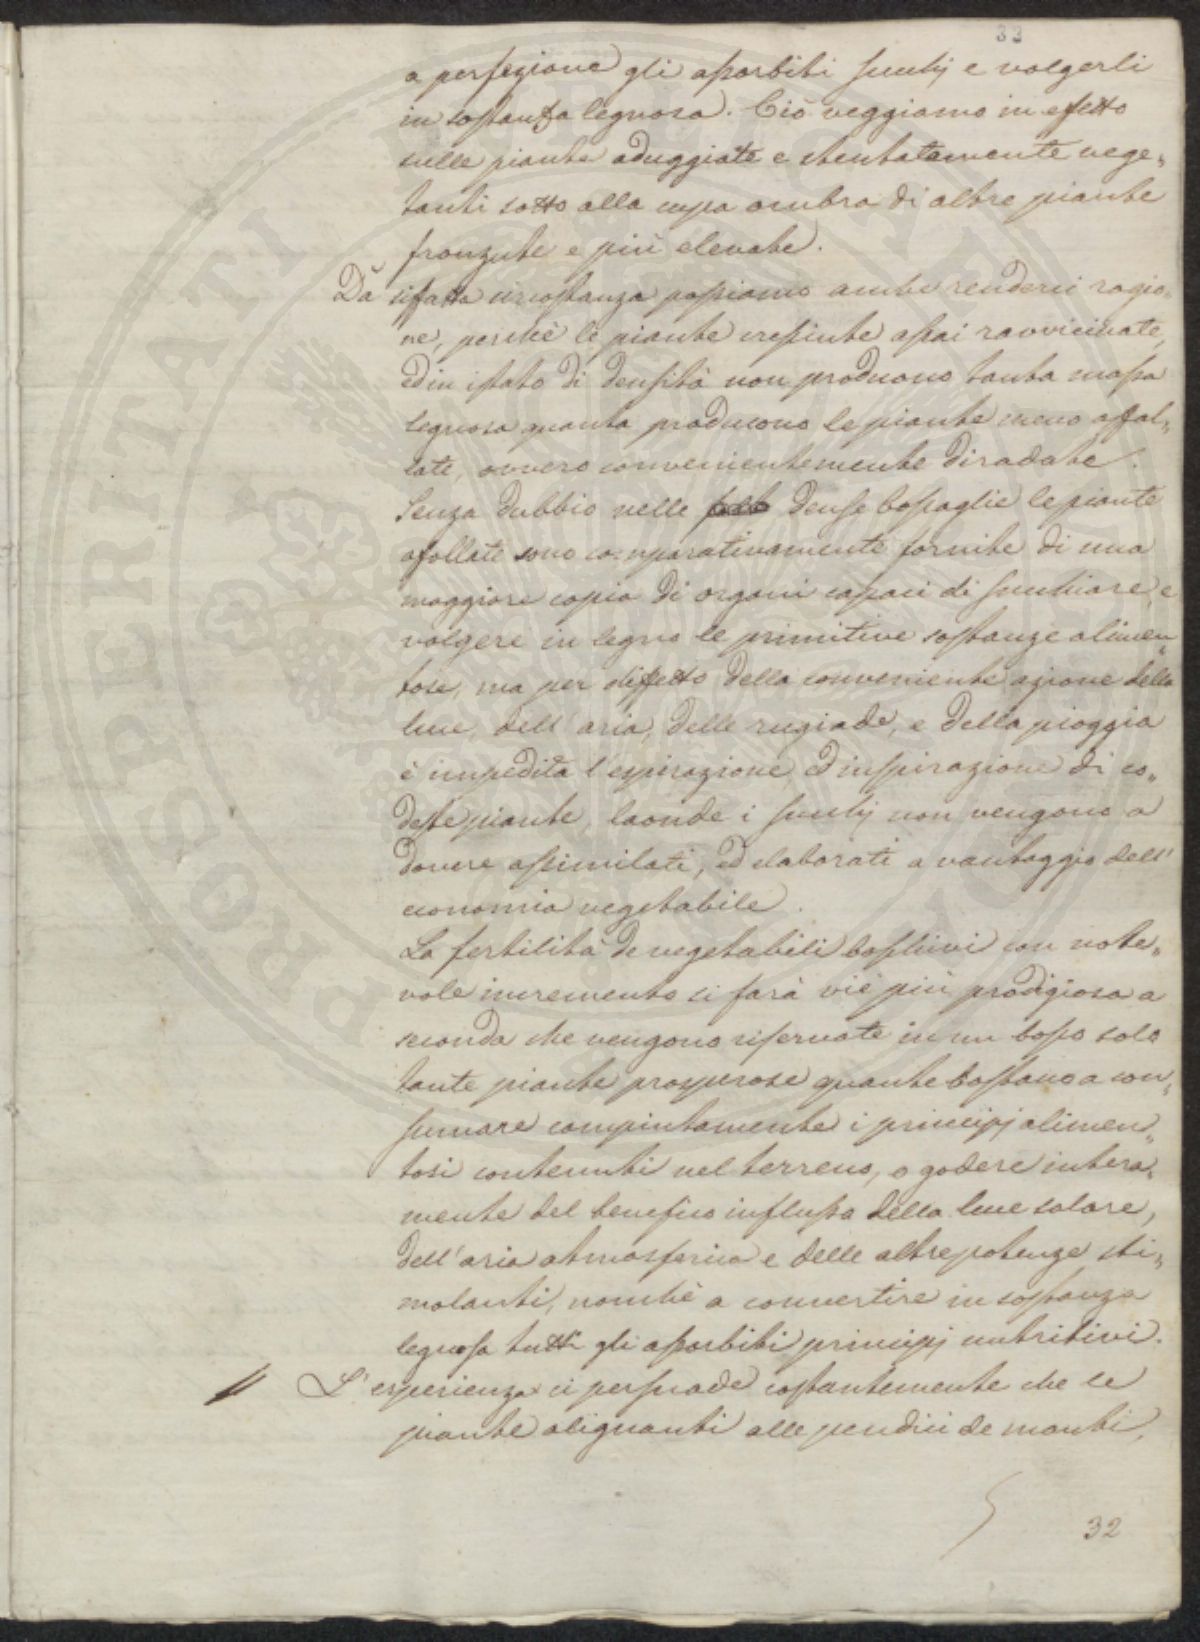 33
a perfezione gli assorbiti succhj e volgerli
in sostanza legnosa. Ciò veggiamo in effetto
nelle piante aduggiate e stentatamente vege„
tanti sotto alla cupa ombra di altre piante
fronzute e più elevate.
Da siffatta circostanza possiamo anche renderci ragio„
ne, perchè le piante cresciute assai ravvicinate,
ed in istato di densità non producono tanta massa
legnosa quanta producono le piante meno affol„
late, ovvero convenientemente diradate.
Senza dubbio nelle folte dense boscaglie le piante
afollate sono comparativamente fornite di una
maggiore copia di organi capaci di succhiare, e
volgere in legno le primitive sostanze alimen„
tose, ma per diffetto della conveniente azione della
luce, dell'aria, delle rugiade, e della pioggia
è impedita l'espirazione, ed inspirazione di co„
deste piante, laonde i succhj non vengono a
dovere assimilati, ed elaborati a vantaggio dell'
economia vegetabile.
La fertilità de vegetabili boschivi con note„
vole incremento si farà viè più prodigiosa a
seconda che vengono riservate in un bosco solo
tante piante prosperose quante bastano a con„
sumare compiutamente i principj alimen„
tosi contenuti nel terreno, o godere intera„
mente del benefico influsso della luce solare,
dell'aria atmosferica e delle altre potenze sti„
molanti, nonchè a convertire in sostanza
legnosa tutti gli assorbiti principj nutritivi.
L'esperienza ci persuade costantemente che le
piante alignanti alle pendici de monti,
32
PROSPERITATI